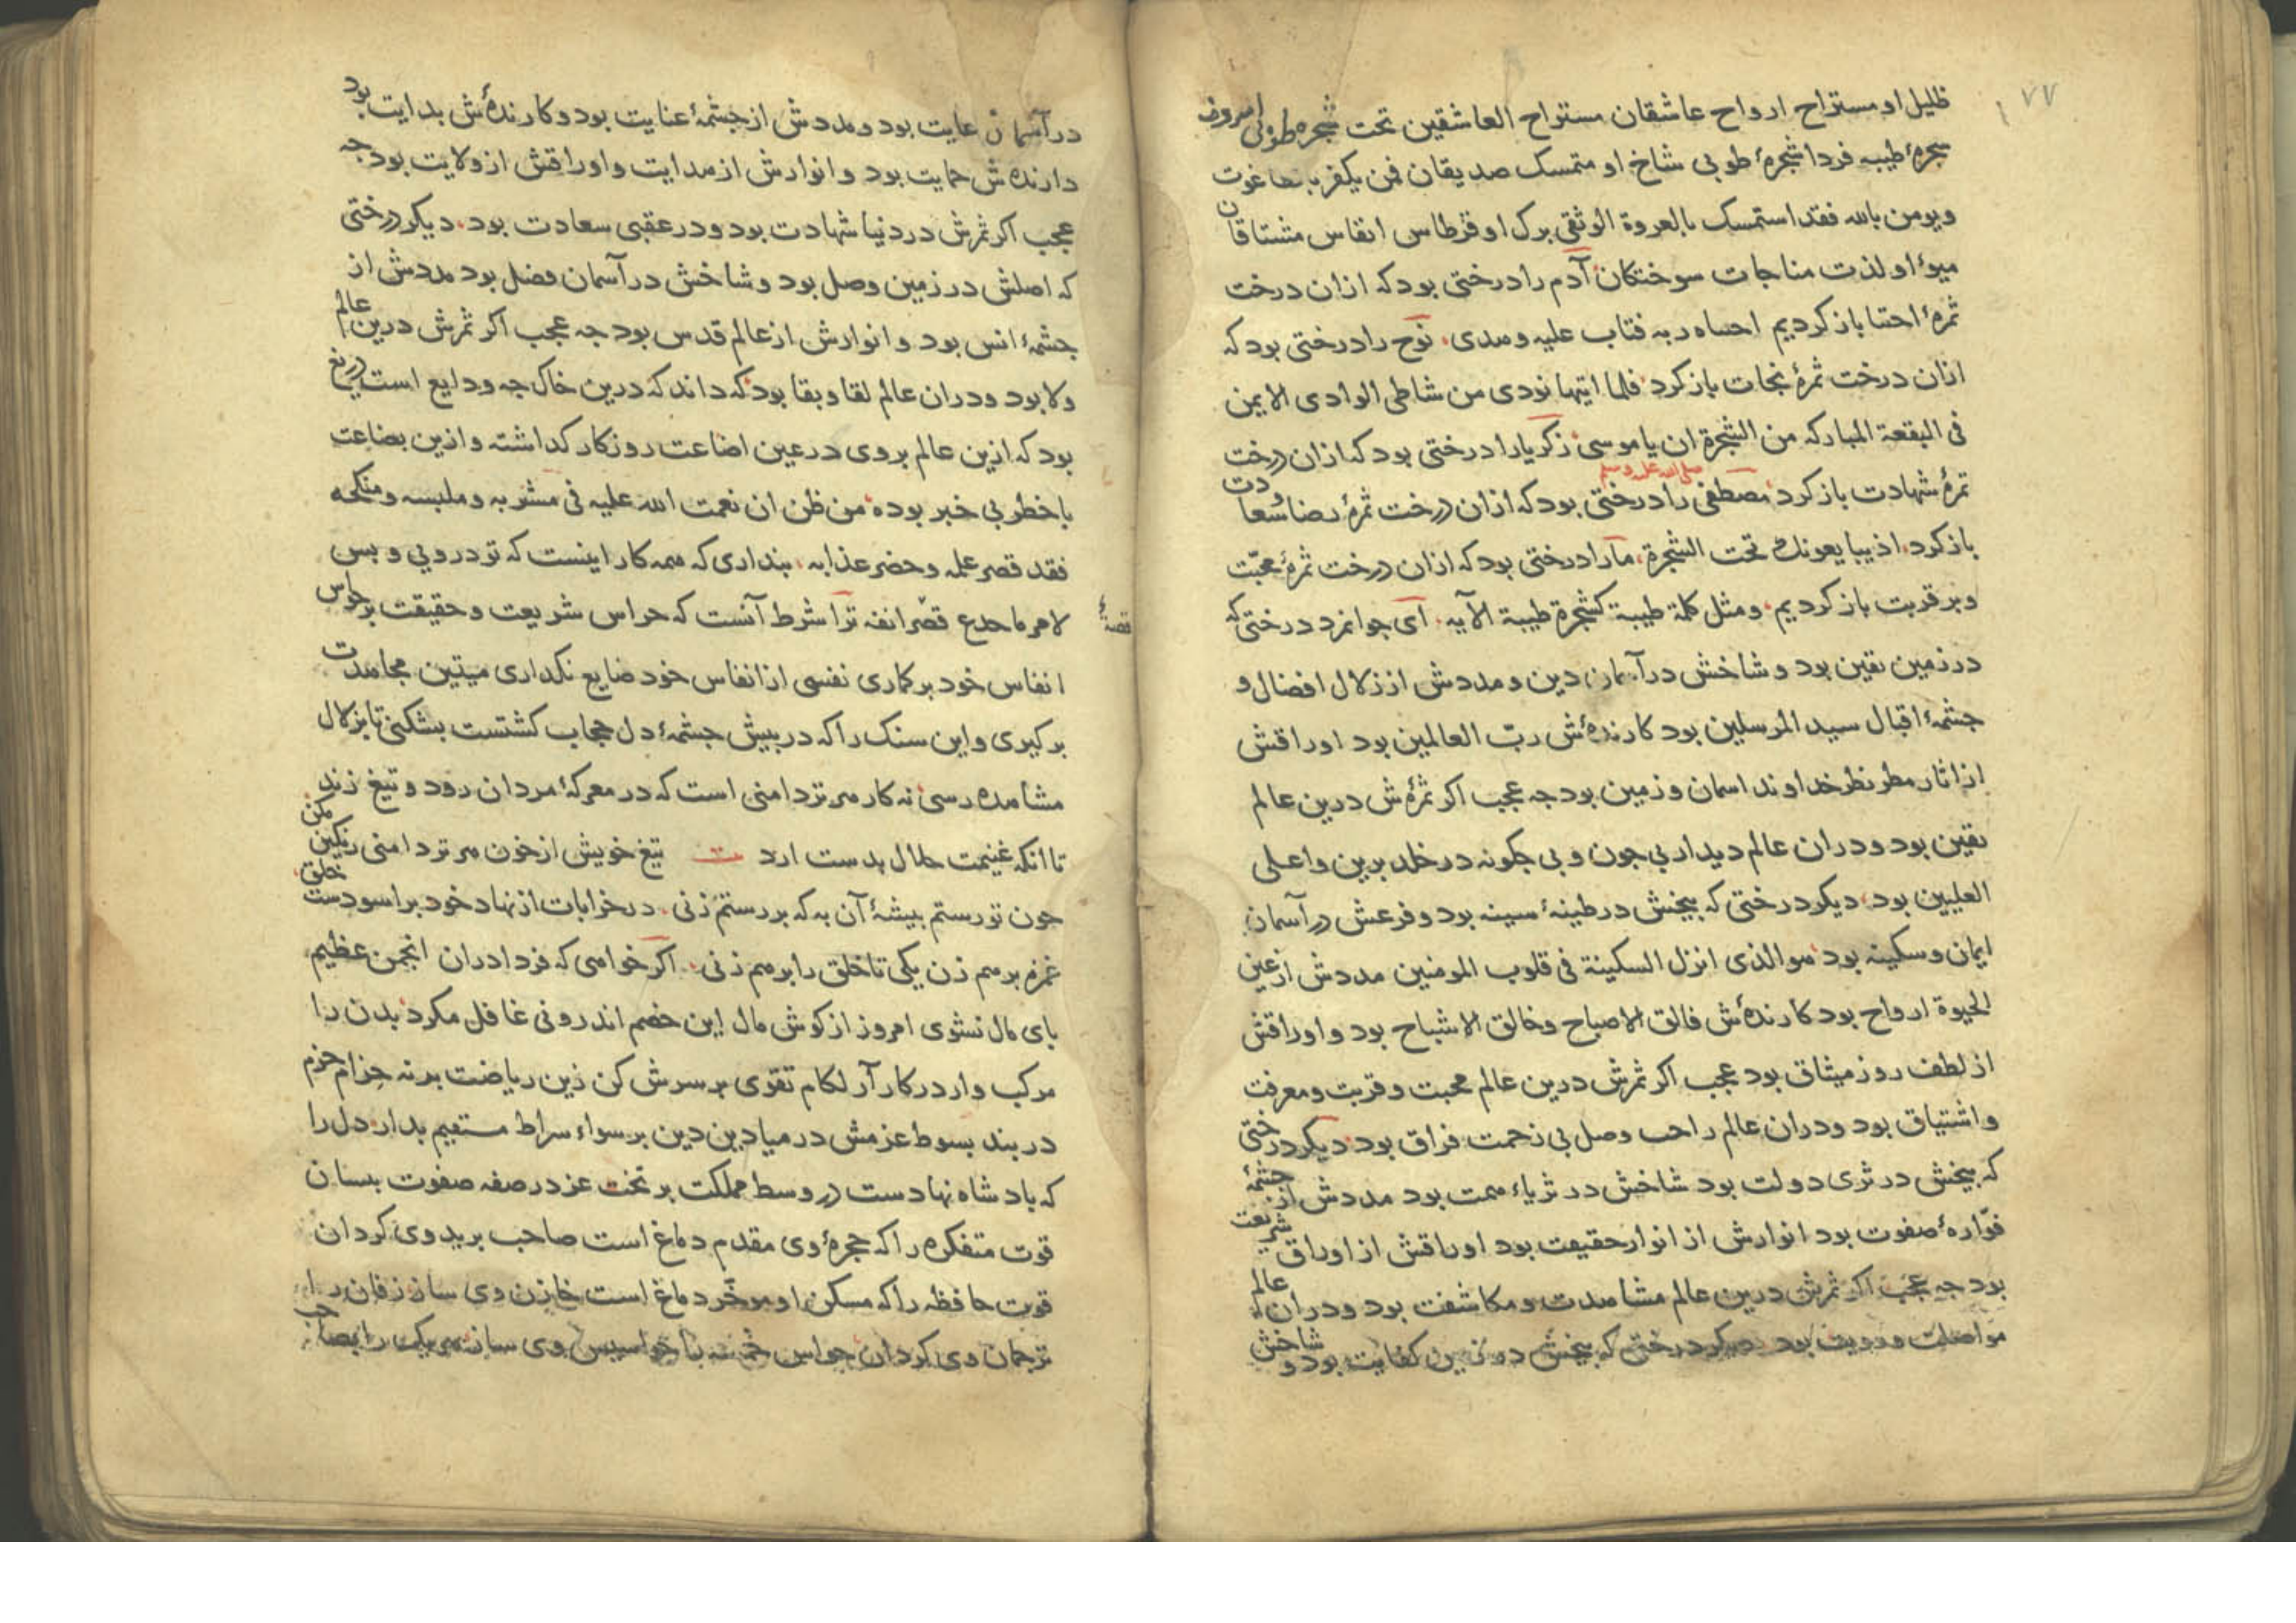 ۷۷
ظلیل او مستراح ارواح عاشقان مستراح العاشقین تحت شجره طوبی امروز
شجرهٔ طیبه فردا شجرهٔ طوبی شاخ او متمسک صدیقان فمن یکفر بطاغوت
ویومن بالله فقد استمسک بالعروة الوثقی برک او قرطاس انفاس مشتاقان
میوهٔ او لذت مناجات سوختکان آدم را درختی بود که ازان درخت
ثمرهٔ اجتبا باز کردیم اجتباه ربه فتاب علیه وهدی نوح را درختی بود که
ازان درخت ثمرهٔ نجات باز کرد فلما اتیها نودی من شاطی الوادی الایمن
فی البقعة المبارکه من الشجرة ان یا موسی زکریا را درختی بود که ازان درخت
ثمرهٔ شهادت باز کرد مصطفی صلی الله علیه وسلم را درختی بود که ازان درخت ثمرهٔ رضا و سعادت
باز کرد اذ یبایعونک تحت الشجرة ما را درختی بود که ازان درخت ثمرهٔ محبّت
وبر قربت باز کردیم ومثل کلمة طیبة کشجرة طیبة الآیه ای جوانمرد درختی که
در زمین یقین بود و شاخش در آسمان دین و مددش از زلال افضال و
چشمهٔ اقبال سید المرسلین بود کارنده‌ٔش ربّ العالمین بود اوراقش
از اثار مطر نظر خداوند اسمان و زمین بود جه عجب اکر ثمرهٔ‌ش درین عالم
یقین بود ودران عالم دیدار بی جون و بی جکونه در خلد برین و اعلی
العلیین بود دیکر درختی که بیخش در طینهٔ سینه بود و فرعش در آسمان
ایمان و سکینه بود هو الذی انزل السکینة فی قلوب المومنین مددش از عین
الحیوة ارواح بود کارنده‌ٔش فالق الاصباح وخالق الاشباح بود و اوراقش
از لطف روز میثاق بود عجب اکر ثمرش درین عالم محبت و قربت و معرفت
و اشتیاق بود ودران عالم راحت وصل بی زحمت فراق بود دیکر درختی
که بیخش در ثری دولت بود شاخش در ثریاء همت بود مددش از چشمهٔ
فوّارهٔ صفوت بود انوارش از انوار حقیقت بود اوراقش از اوراق شریعت
بود جه عجب اکر ثمرش درین عالم مشاهدت و مکاشفت بود ودران عالم
مواصلت و رویت بود دیکر درختی که بیخش در زمین کفایت بود و شاخش
در آسمان عایت بود و مددش از چشمهٔ عنایت بود و کارنده‌ٔش بدایت بود
دارنده‌ش حمایت بود و انوارش از هدایت و اوراقش از ولایت بود جه
عجب اکر ثمرش در دنیا شهادت بود ودر عقبی سعادت بود دیکر درختی
که اصلش در زمین وصل بود و شاخش در آسمان فضل بود مددش از
چشمهٔ انس بود و انوارش از عالم قدس بود جه عجب اکر ثمرش درین عالم
ولا بود ودران عالم لقا و بقا بود که داند که درین خاک جه ودایع است دریغ
بود که ازین عالم بروی در عین اضاعت روزکار کداشته و ازین بضاعت
باخطر بی خبر بوده من ظن ان نعمت الله علیه فی مشربه و ملبسه و منکحه
فقد قصر علمه و حضر عذابه بنداری که همه کار اینست که تو دروبی و بس
لامر ما جدع قصّر انفه ترا شرط آنست که حراس شریعت و حقیقت بر حواس
قصهٔ
انفاس خود برکماری نفسی از انفاس خود ضایع نکداری میتین مجاهدت
برکیری و این سنک را که در بیش جشمهٔ دل حجاب کشتست بشکنی تا بزلال
مشاهده رسی نه کار هر تردامنی است که در معرکهٔ مردان رود و تیغ زند
تا انکه غنیمت حلال بدست ارد تیغ خویش از خون هر تردامنی رنکین مکن
جون تو رستم بیشهٔ آن به که بر رستم زنی در خرابات از نهاد خود براسودست خلق
غمزه برهم زن یکی تا خلق را برهم زنی اکر خواهی که فردا دران انجمن عظیم
بای مال نشوی امروز از کوش مال این خصم اندرونی غافل مکرد بدن را
مرکب وار در کار آر لکام تقوی بر سرش کن زین ریاضت بر نه حزام حزم
در بند بسوط عزمش در میادین دین بر سواء سراط مستقیم بدار دل را
که بادشاه نهادست در وسط مملکت بر تخت عز در صفه صفوت بسان
قوت متفکره را که حجرهٔ وی مقدم دماغ است صاحب برید وی کردان
قوت حافظه را که مسکن او موخّر دماغ است خازن وی ساز زفان را
ترجمان وی کردان حواس خمسه را جواسیس وی ساز هر یکی را بصاحب